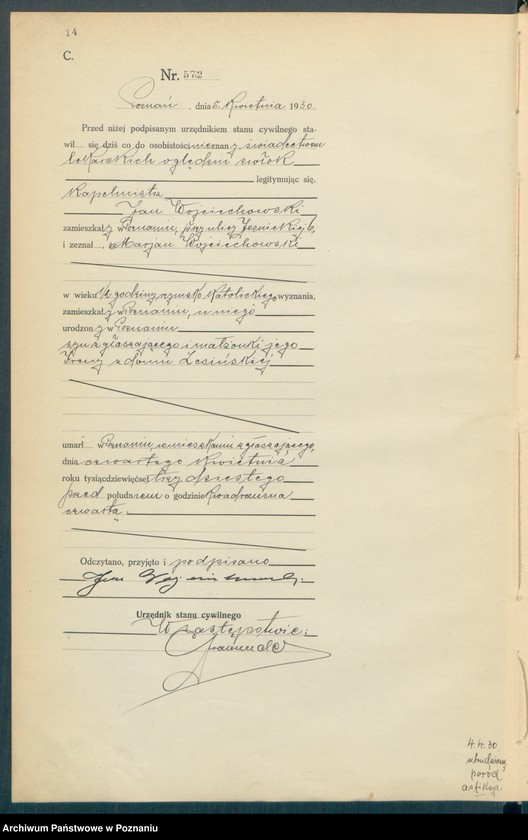 14
C.
Nr. 572
Poznań, dnia 5. Kwietnia 1930.
Przed niżej podpisanym urzędnikiem stanu cywilnego sta-
wił się dziś co do osobistości nieznany, świadectwem
lekarskich oględzin zwłok
legitymując się,
Kapelmistrz
Jan Wojciechowski
zamieszkały w Poznaniu, przy ulicy
i zeznał, że Marjan Wojciechowski
w wieku 1/2 godziny, rzymsko Katolickiego wyznania,
zamieszkały w Poznaniu, u niego
urodzony w Poznaniu
syn zgłaszającego i małżonki jego
Ireny z domu Lesińskiej
umarł w Poznaniu, w mieszkaniu zgłaszającego,
dnia czwartego Kwietnia
roku tysiącdziewięćset trzydziestego
przed południem o godzinie kwadrans na
czwartą.
Odczytano, przyjęto i podpisano
Jan Wojciechowski
Urzędnik stanu cywilnego
W zastępstwie:
4.4.30
poród
Archiwum Państwowe w Poznaniu